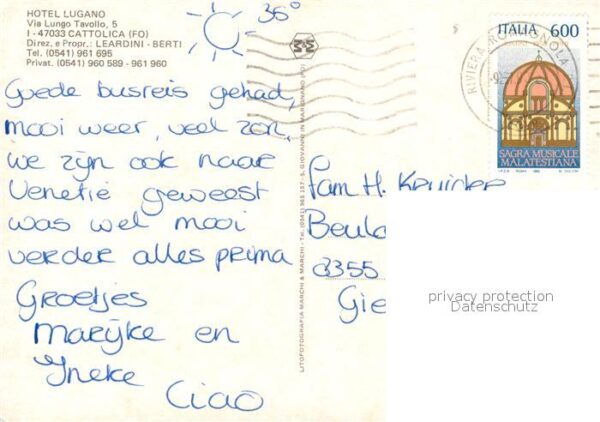 HOTEL LUGANO
Via Lungo Tavollo, 5
I - 47033 CATTOLICA (FO)
Direz. e Propr.: LEARDINI - BERTI
Tel. (0541) 961 695
Privat. (0541) 960 589 - 961 960
36°
Goede busreis gehad,
mooi weer, veel zon,
we zijn ook naar
Venetië geweest
was wel mooi
verder alles prima
Groetjes
Marijke en
Ineke
Ciao
LITOFOTOGRAFIA MARCHI & MARCHI - Tel. (0541) 965 157 - S. GIOVANNI IN MARIGNANO (FO)
RIVIERA ROMAGNOLA
ITALIA 600
SAGRA MUSICALE
MALATESTIANA
I.P.Z.S. ROMA
Fam H.
3355
Gie
privacy protection
Datenschutz